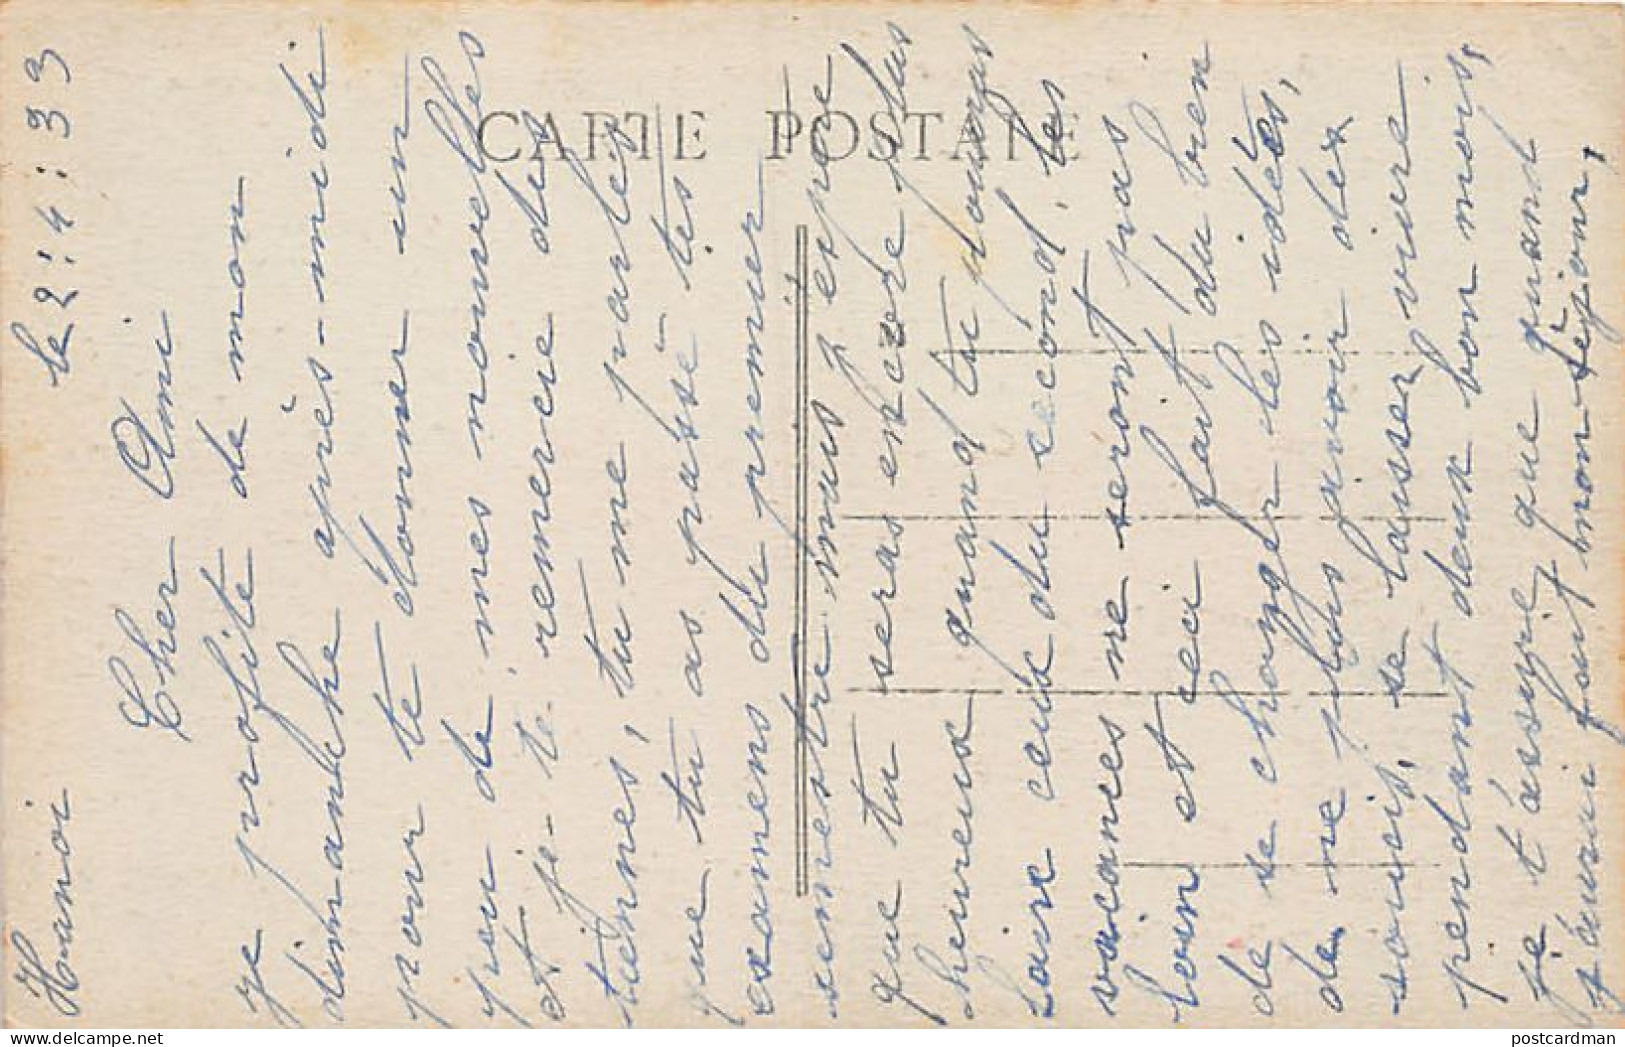 Hanoi le 2:4:33
Cher Ami
je profite de mon
dimanche après-midi
pour te donner un
peu de mes nouvelles
et je te remercie des
tiennes, tu me parles
que tu as passé tes
examens du premier
semestre mais j'espère
que tu seras encore plus
heureux quand tu pourras
faire ceux du second, les
vacances ne seront pas
loin et ceci fait du bien
de se changer les idées,
de ne plus avoir des
soucis, se laisser vivre
pendant deux bon mois,
je t'assure que quand
j'aurai fait mon séjour,
CARTE POSTALE
postcardman